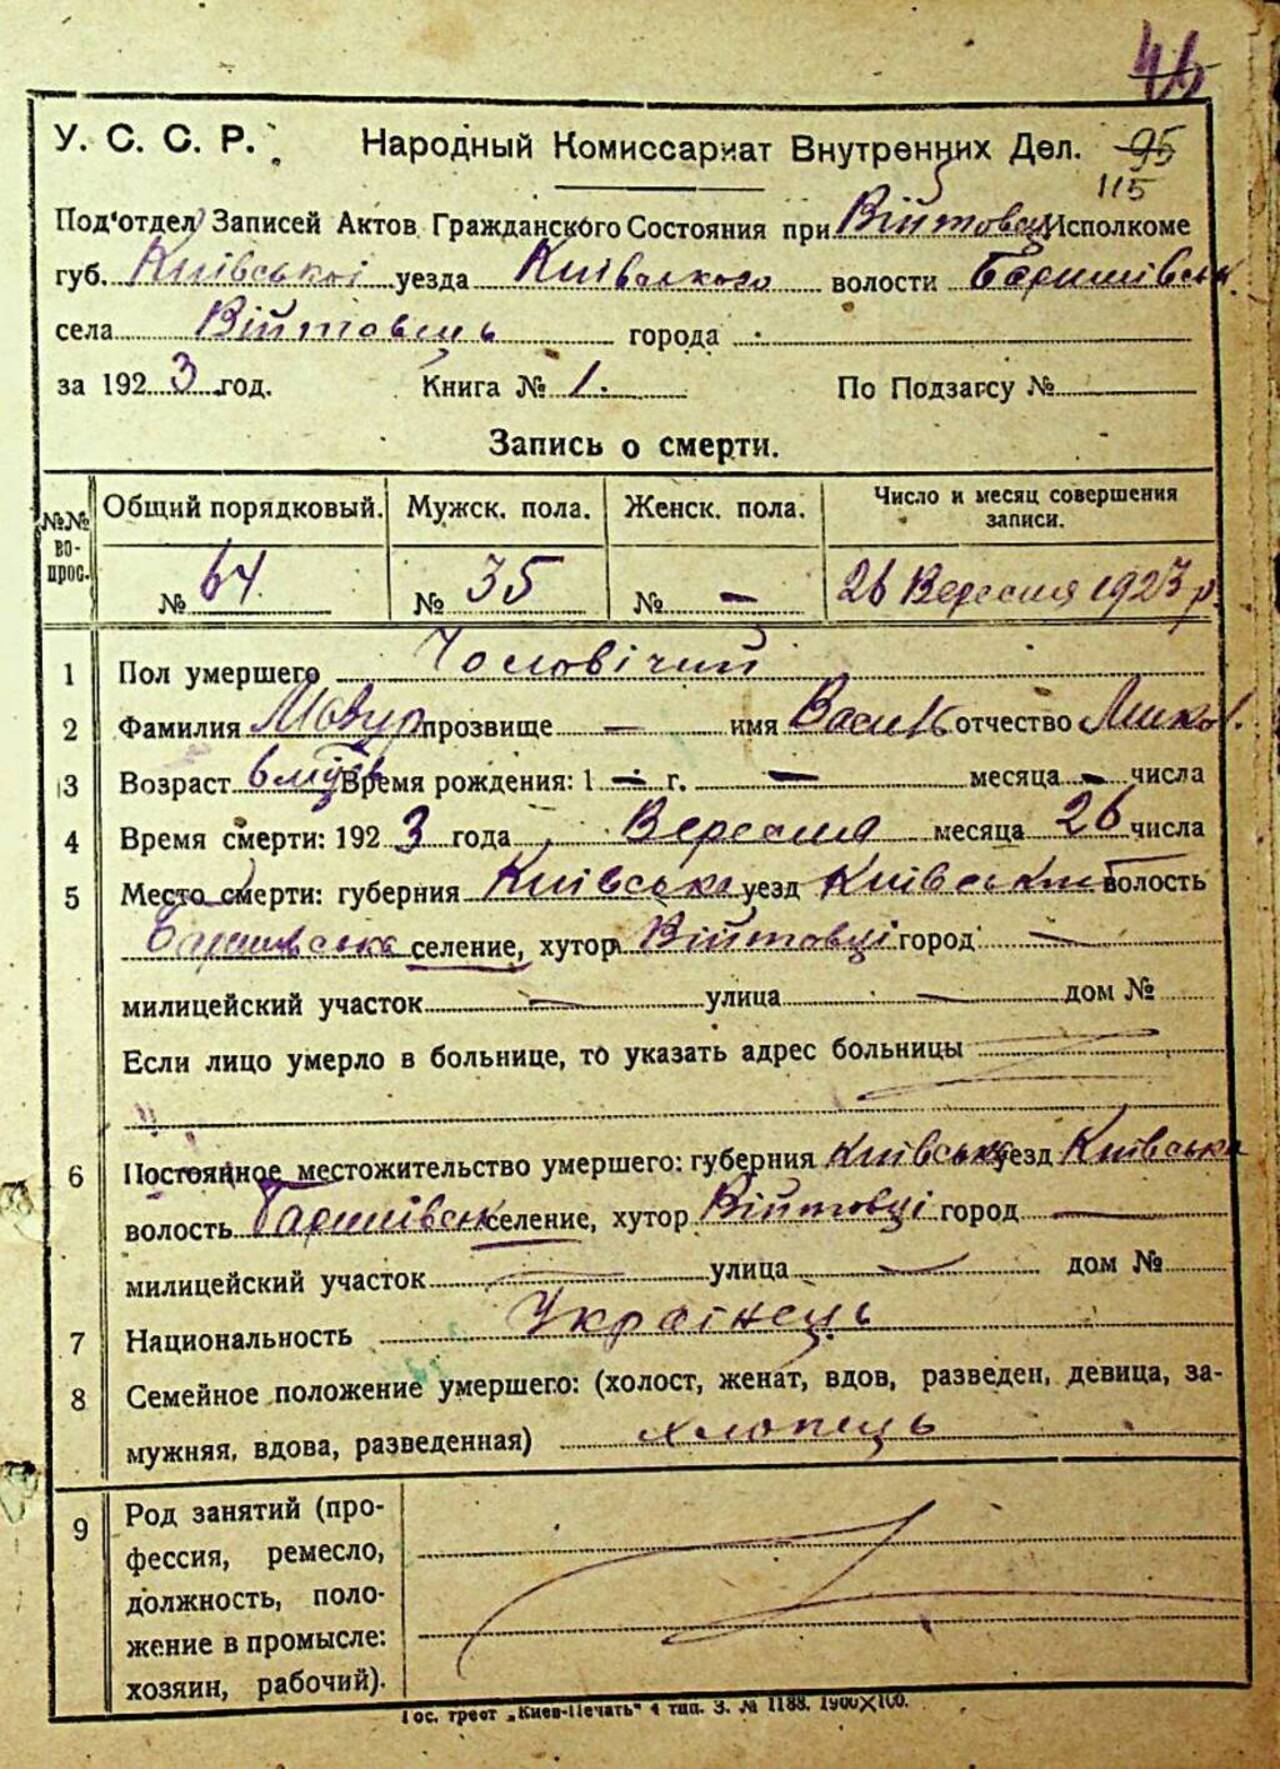 46
У. С. С. Р. Народный Комиссариат Внутренних Дел. 95
115
Под'отдел Записей Актов Гражданского Состояния при Війтовец. Исполкоме
губ. Київської уезда Київського волости Баришівськ.
села Війтовець города
за 1923 год. Книга № 1. По Подзагсу №
Запись о смерти.
№№ вопрос. Общий порядковый. Мужск. пола. Женск. пола. Число и месяц совершения записи.
№ 64 № 35 № — 26 Вересня 1923 р.
1 Пол умершего Чоловічий
2 Фамилия прозвище — имя Василь отчество Микол.
3 Возраст 6 Время рождения: 1 — г. — месяца — числа
4 Время смерти: 1923 года Вересня месяца 26 числа
5 Место смерти: губерния Київська уезд волость
Баришівська селение, хутор Війтовці город —
милицейский участок — улица — дом №
Если лицо умерло в больнице, то указать адрес больницы
6 Постоянное местожительство умершего: губерния Київська уезд Київська
волость Баришівськ селение, хутор Війтовці город —
милицейский участок — улица — дом №
7 Национальность Українець
8 Семейное положение умершего: (холост, женат, вдов, разведен, девица, за-
мужняя, вдова, разведенная) хлопець
9 Род занятий (про-
фессия, ремесло,
должность, поло-
жение в промысле:
хозяин, рабочий).
Гос. трест „Киев-Печать" 4 тип. З. № 1188. 1900×100.